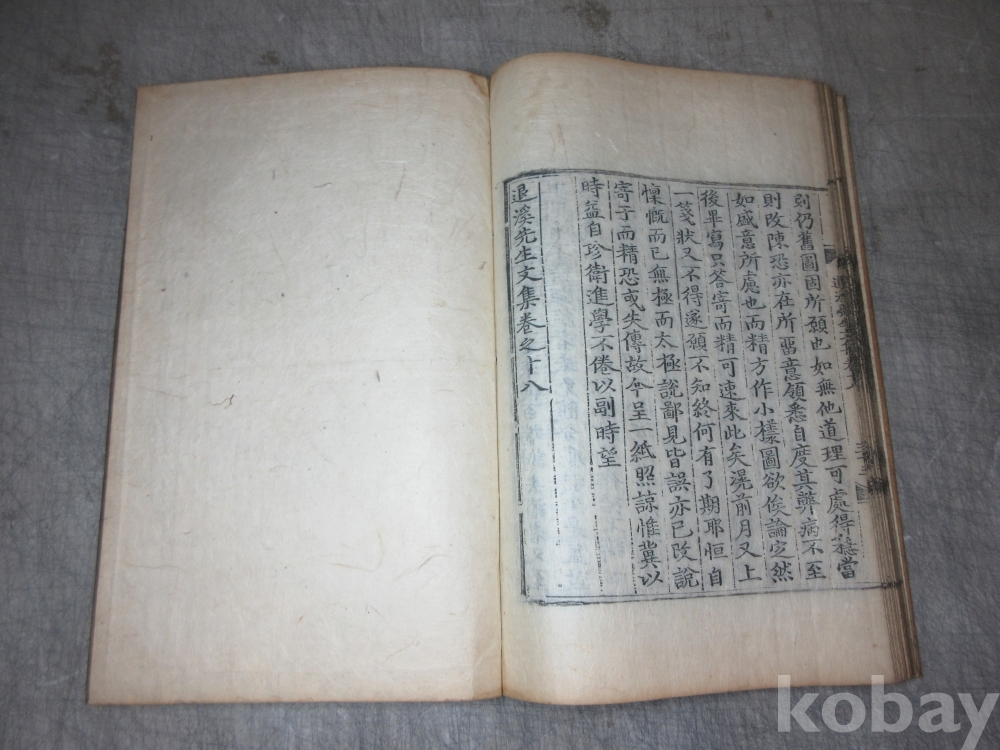 則仍舊圖固所願也如無他道理可處得穩當
則改陳恐亦在所畱意領悉自度其弊病不至
如盛意所慮也而精方作小樣圖欲俟論定然
後畢寫只答寄而精可速來此矣滉前月又上
一箋狀又不得遂願不知終何有了期耶恒自
懍慨而已無極而太極說鄙見皆誤亦已改說
寄子而精恐或失傳故今呈一紙照諒惟冀以
時益自珍衛進學不倦以副時望
退溪先生文集卷之十八
kobay